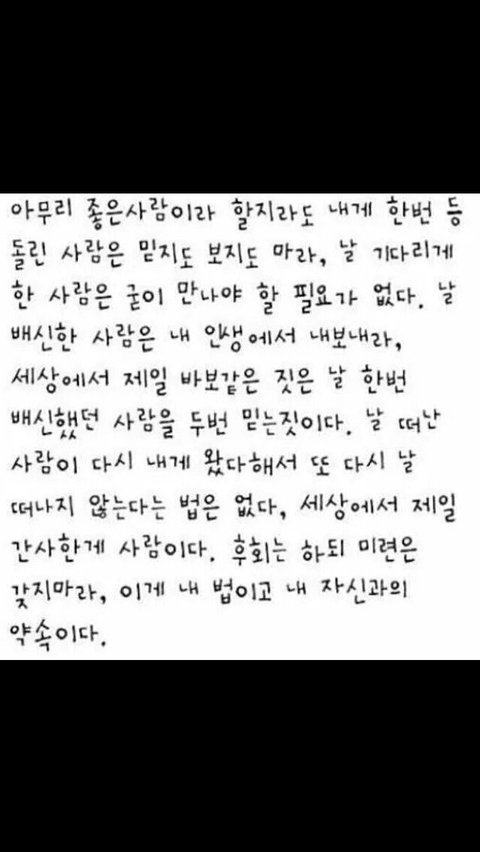 아무리 좋은사람이라 할지라도 내게 한번 등
돌린 사람은 믿지도 보지도 마라, 날 기다리게
한 사람은 굳이 만나야 할 필요가 없다. 날
배신한 사람은 내 인생에서 내보내라,
세상에서 제일 바보같은 짓은 날 한번
배신했던 사람을 두번 믿는짓이다. 날 떠난
사람이 다시 내게 왔다해서 또 다시 날
떠나지 않는다는 법은 없다, 세상에서 제일
간사한게 사람이다. 후회는 하되 미련은
갖지마라, 이게 내 법이고 내 자신과의
약속이다.